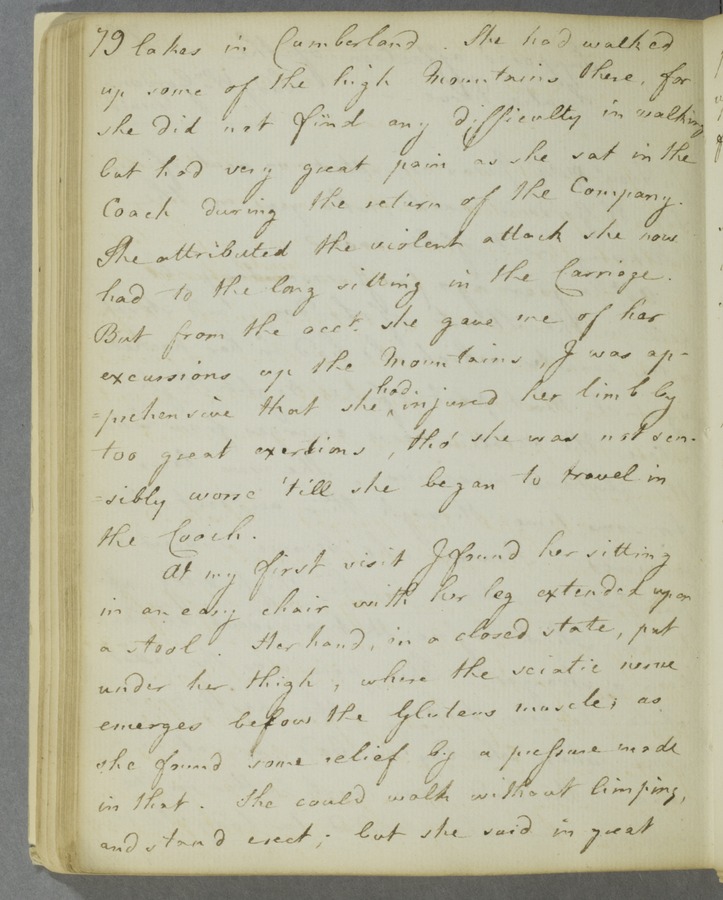 79 lakes in Cumberland. She had walked
up some of the high Mountains there, for
she did not find any difficulty in walking
but had very great pain as she sat in the
Coach during the return of the Company.
She attributed the violent attack she now
had to the long sitting in the Carriage.
But from the acct. she gave me of her
excursions up the Mountains, I was ap-
=prehensive that she ^had injured her limb by
too great exertions, tho' she was not sen-
=sibly worse 'till she began to travel in
the Coach.
At my first visit I found her sitting
in an easy chair with her leg extended upon
a stool. Her hand, in a closed state, put
under her thigh, where the sciatic nerve
emerges below the Gluteus muscle; as
she found some relief by a pressure made
in that. She could walk without limping,
and stand erect; but she said in great